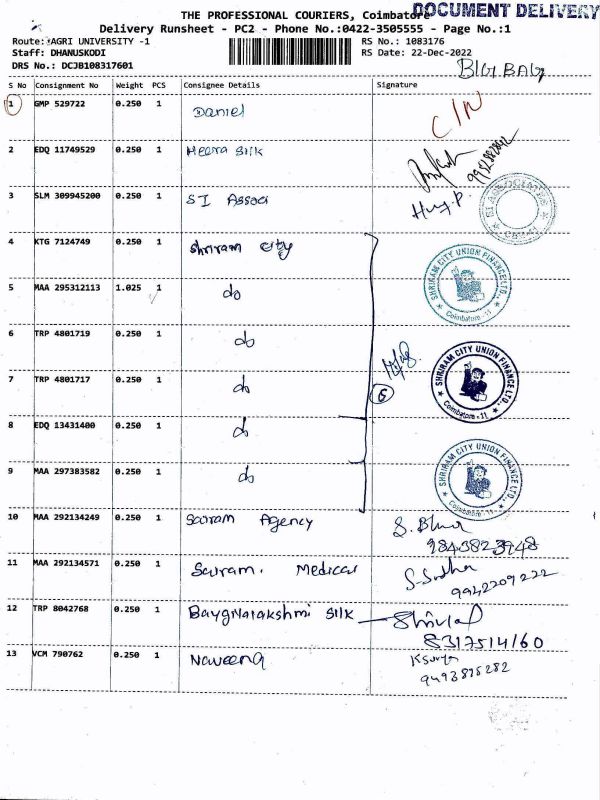 DOCUMENT DELIVERY
THE PROFESSIONAL COURIERS, Coimbatore
Delivery Runsheet - PC2 - Phone No.:0422-3505555 - Page No.:1
Route: AGRI UNIVERSITY -1 RS No.: 1083176
Staff: DHANUSKODI RS Date: 22-Dec-2022
DRS No.: DCJB108317601
S No Consignment No Weight PCS Consignee Details Signature
1 GMP 529722 0.250 1 Daniel
2 EDQ 11749529 0.250 1 Heera Silk
3 SLM 309945200 0.250 1 SI Associ
4 KTG 7124749 0.250 1 Shriram City
SHRIRAM CITY UNION FINANCE LTD., Coimbatore - 11
5 MAA 295312113 1.025 1 do
6 TRP 4801719 0.250 1 do
SHRIRAM CITY UNION FINANCE LTD., Coimbatore - 11
7 TRP 4801717 0.250 1 do
6
8 EDQ 13431400 0.250 1 do
9 MAA 297383582 0.250 1 do
SHRIRAM CITY UNION FINANCE LTD., Coimbatore - 11
10 MAA 292134249 0.250 1 Sairam Agency
9843823948
11 MAA 292134571 0.250 1 Sairam. Medical S-Sudha
9942209222
12 TRP 8042768 0.250 1 Silk
8317514160
13 VCM 790762 0.250 1 Naveena K Surya
9493875282